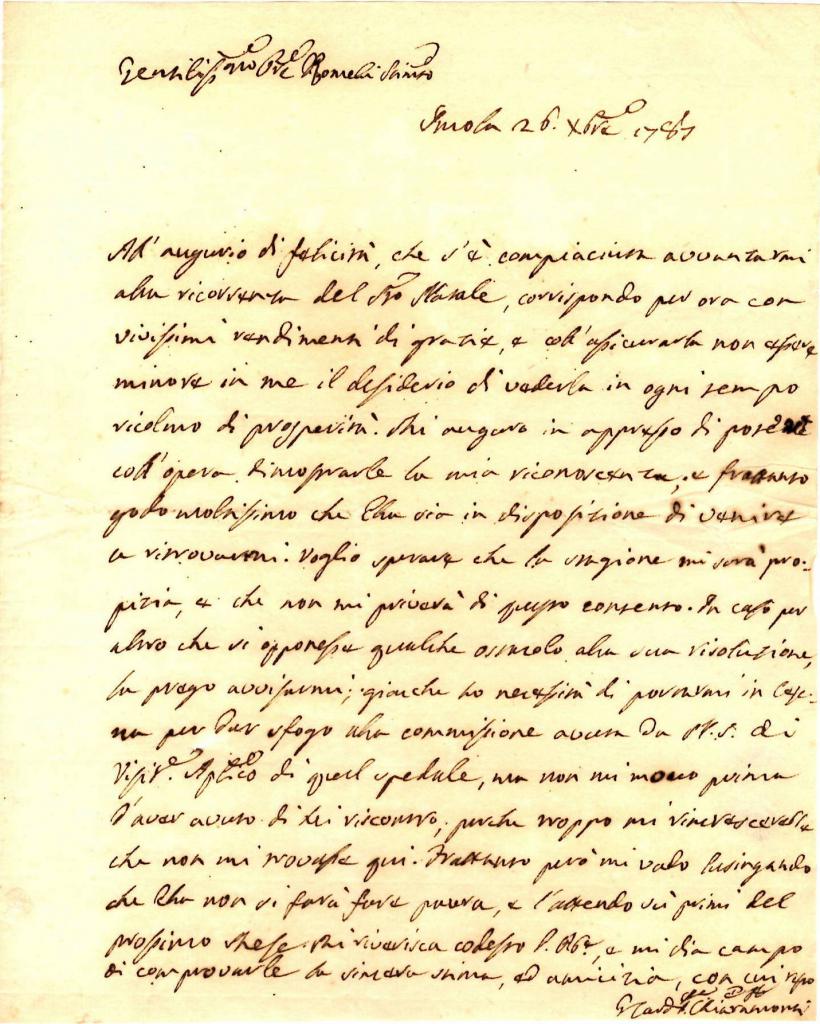 Gentilissimo Pre Ronchi Stimto
Imola 26. Xbre 1787
All' augurio di felicità, che s'è compiaciuta avvanzarmi
alla ricorrenza del Sto Natale, corrispondo per ora con
vivissimi rendimenti di grazie, e coll' assicurarla non essere
minore in me il desiderio di vederla in ogni tempo
ricolmo di prosperità. Mi auguro in appresso di potere
coll' opera dimostrarle la mia riconoscenza, e frattanto
godo moltissimo che Ella sia in disposizione di venire
a ritrovarmi. Voglio sperare che la stagione mi sarà pro-
pizia, e che non mi priverà di questo contento. In caso per
altro che si opponesse qualche ostacolo alla sua risoluzione,
la prego avvisarmi; giacche ho necessità di portarmi in Cese-
na per dar sfogo alla commissione avuta da N. S. di
Visitre Aplico di quel spedale, ma non mi movo prima
d'aver avuto di Lei riscontro, perche troppo mi rincrescerebbe
che non mi trovasse qui. Frattanto però mi vado lusingando
che Ella non si farà fare paura, e l'attendo sù primi del
prossimo Mese. Mi riverisca codesto P. Abte, e mi dia campo
di comprovarle la sincera stima, ed amicizia, con cui sono
Chiaramonti